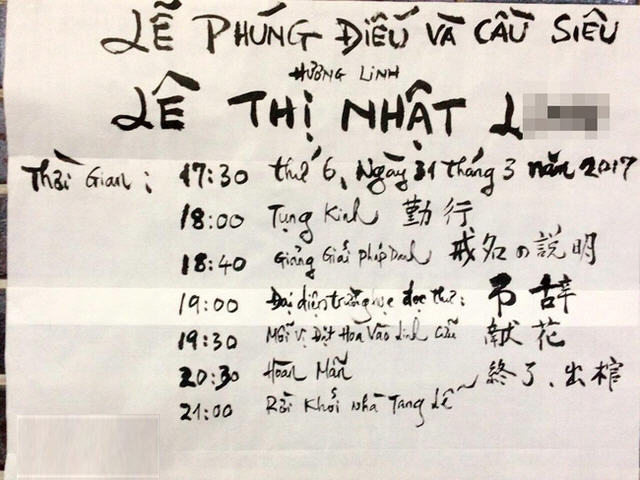 LỄ PHÚNG ĐIẾU VÀ CẦU SIÊU
HƯƠNG LINH
LÊ THỊ NHẬT L
Thời Gian: 17:30 thứ 6, Ngày 31 tháng 3 năm 2017
18:00 Tụng Kinh 勤行
18:40 Giảng Giải Pháp Danh 戒名の説明
19:00 Đại diện trường học đọc thư: 弔辞
19:30 Mỗi Vị Đặt Hoa Vào Linh Cữu 献花
20:30 Hoàn Mãn 終了、出棺
21:00 Rời Khỏi Nhà Tang Lễ